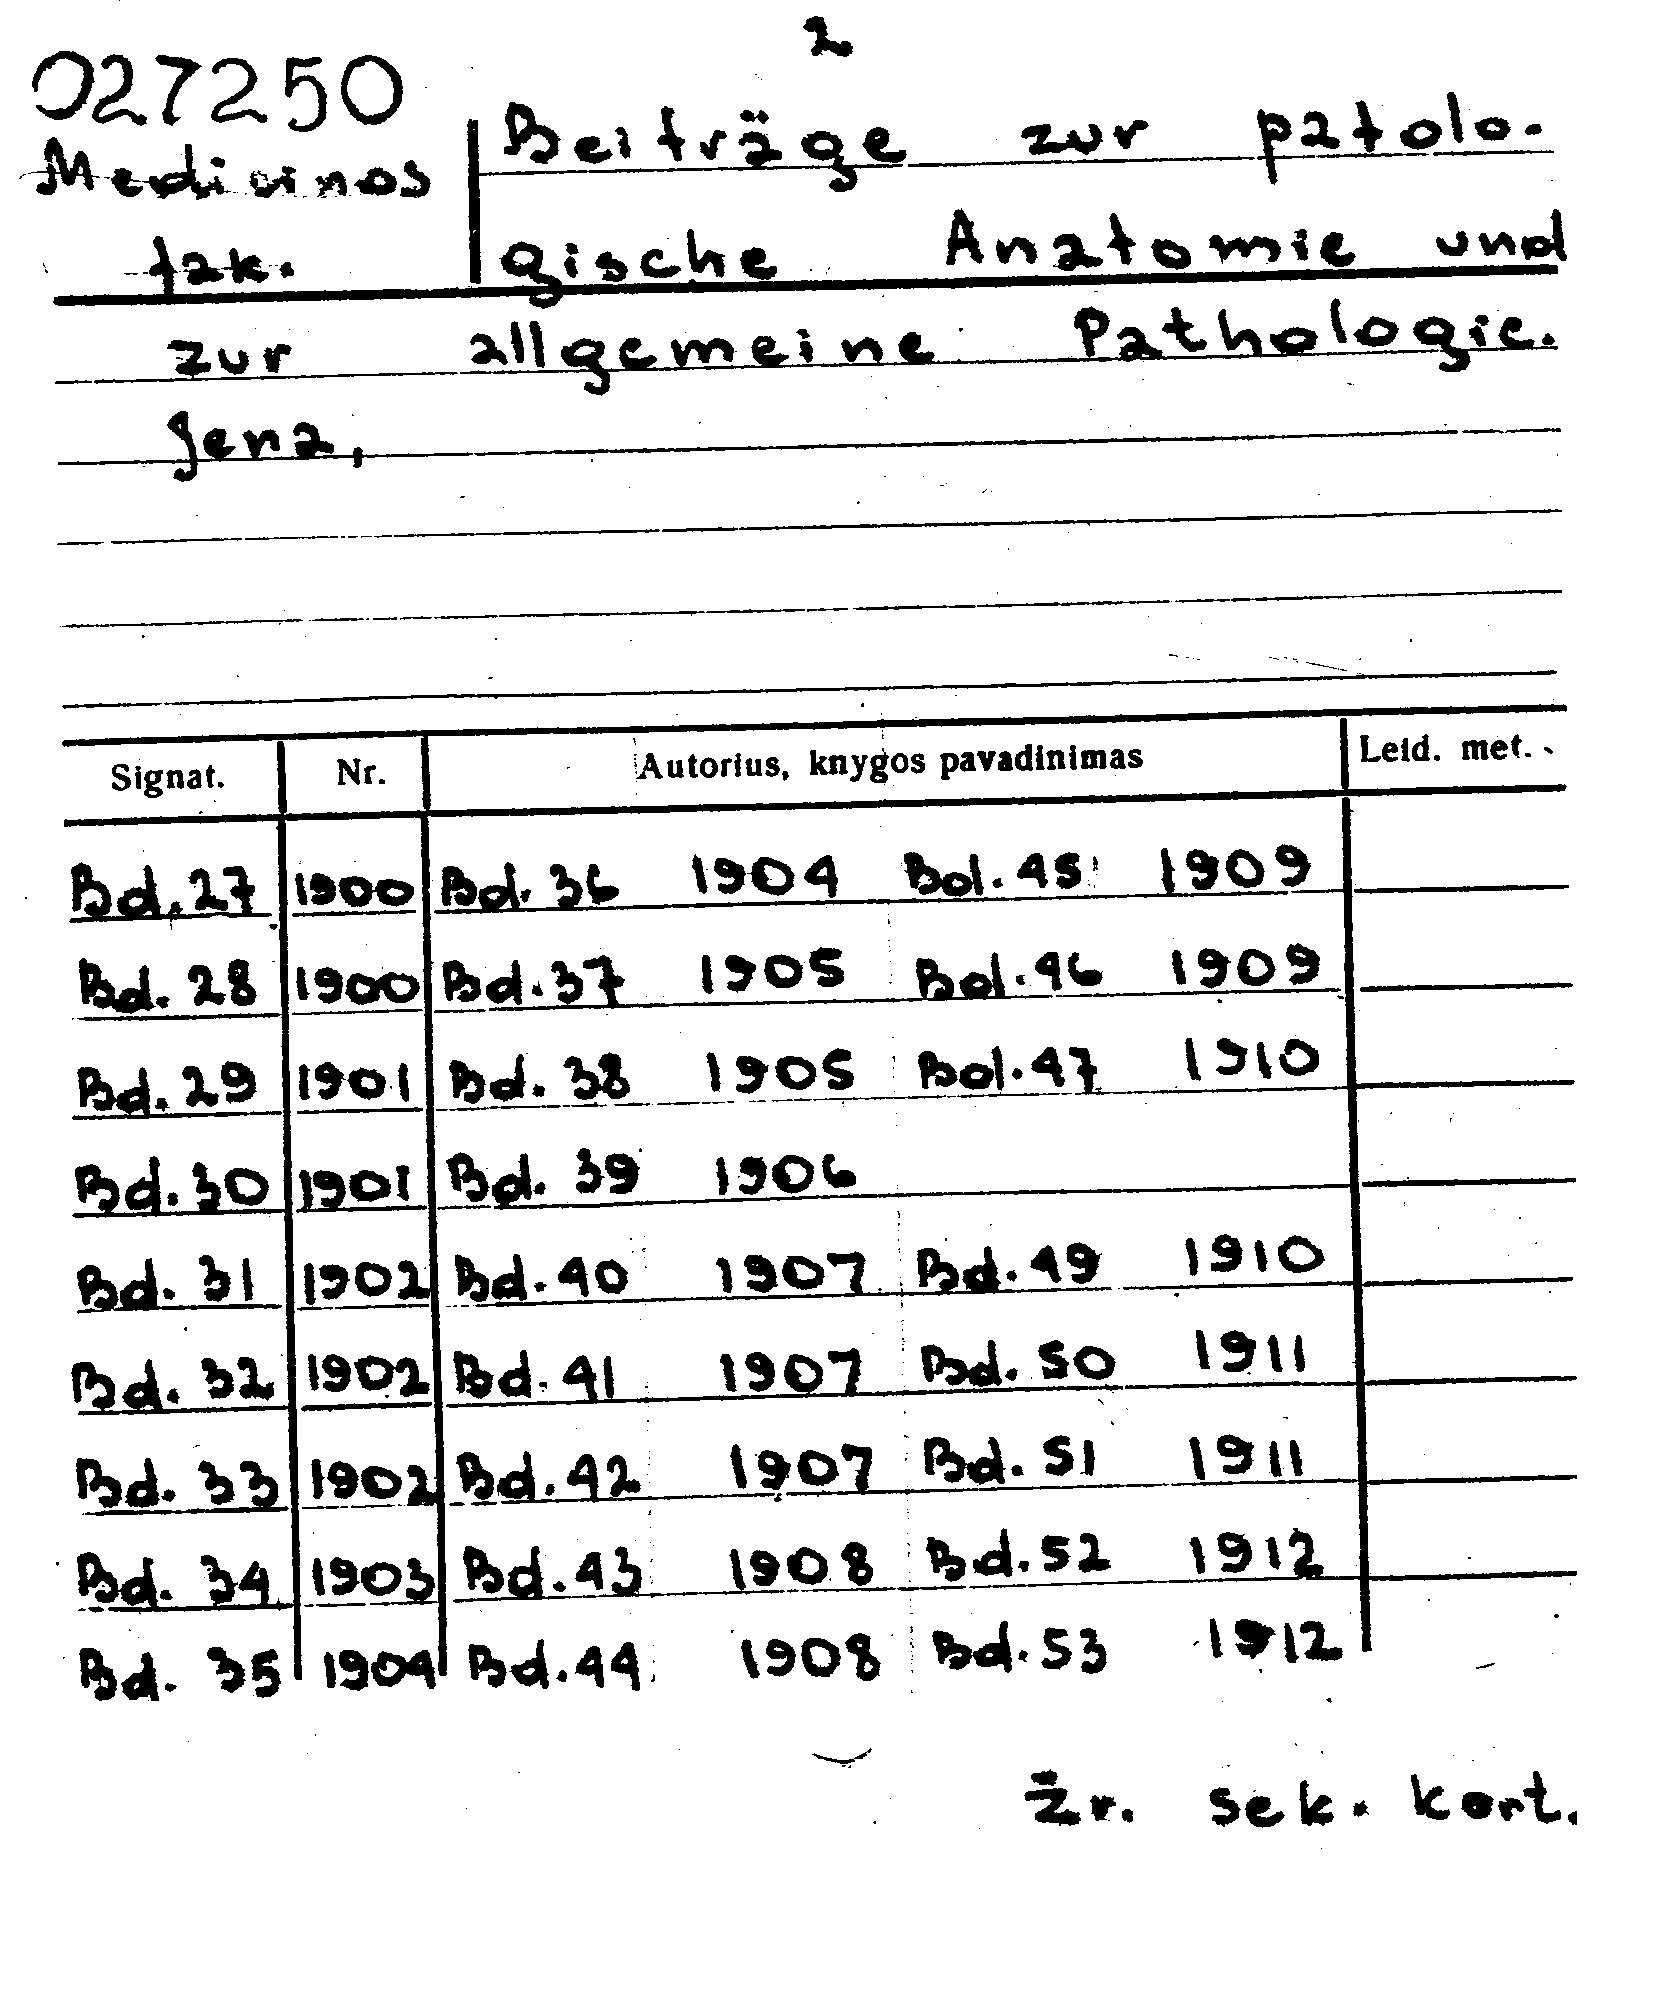 2
027250
Medicinos
fak.
Beiträge zur patolo-
gische Anatomie und
zur allgemeine Pathologie.
Jena,
Signat. Nr. Autorius, knygos pavadinimas Leid. met.
Bd. 27 1900 Bd. 36 1904 Bd. 45 1909
Bd. 28 1900 Bd. 37 1905 Bd. 46 1909
Bd. 29 1901 Bd. 38 1905 Bd. 47 1910
Bd. 30 1901 Bd. 39 1906
Bd. 31 1902 Bd. 40 1907 Bd. 49 1910
Bd. 32 1902 Bd. 41 1907 Bd. 50 1911
Bd. 33 1902 Bd. 42 1907 Bd. 51 1911
Bd. 34 1903 Bd. 43 1908 Bd. 52 1912
Bd. 35 1904 Bd. 44 1908 Bd. 53 1912
Žr. sek. kort.